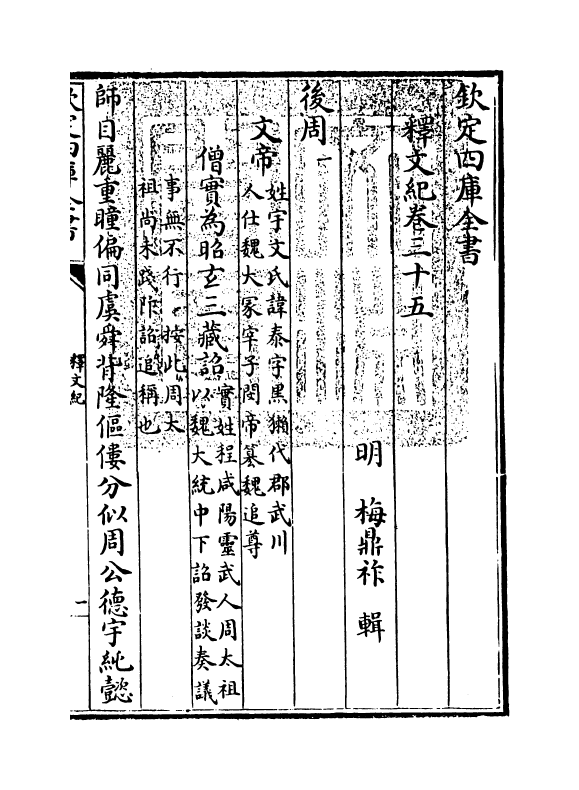 欽定四庫全書
釋文紀卷三十五
明　梅鼎祚　輯
後周
文帝
姓宇文氏諱泰字黑獺代郡武川
人仕魏大冢宰子閔帝篡魏追尊
僧實為昭玄三藏詔
實姓程咸陽靈武人周太祖
以魏大統中下詔發談奏議
事無不行　按此周太
祖尚未踐阼詔追稱也
師目麗重瞳偏同虞舜背隆傴僂分似周公德宇純懿
欽定四庫全書
釋文紀
一